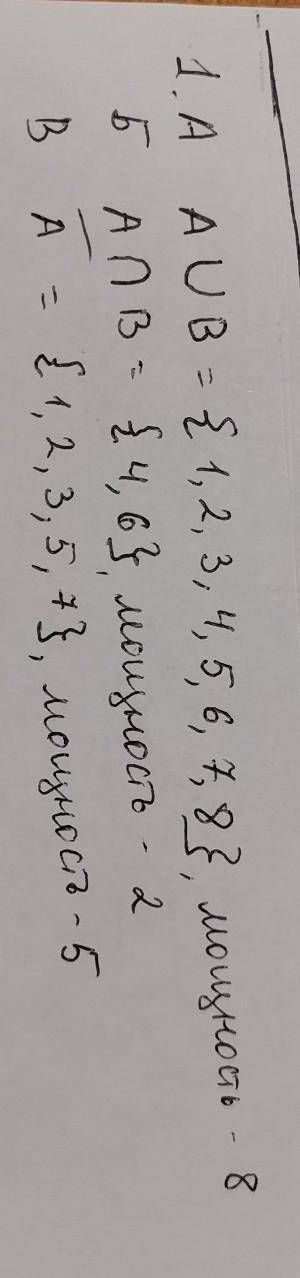 1. А A∪B = {1, 2, 3, 4, 5, 6, 7, 8}, мощность - 8
Б A∩B = {4, 6}, мощность - 2
В A̅ = {1, 2, 3, 5, 7}, мощность - 5